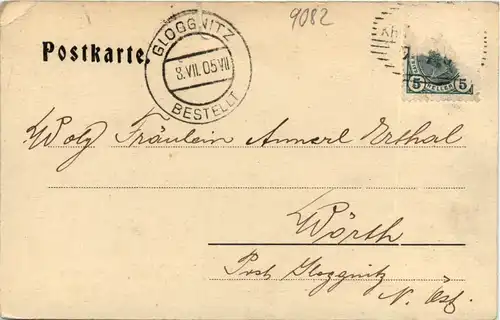 9082
Postkarte.
GLOGGNITZ
8.VII.05 VII
BESTELLT
5 HELLER 5
Wolg Fräulein Annerl Erthal
Wörth
Post Gloggnitz
N. Öst.